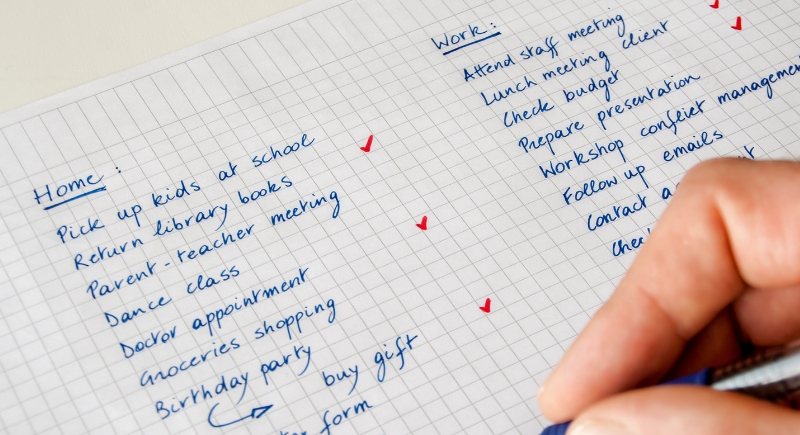 Home:
Pick up kids at school
Return library books
Parent-teacher meeting
Dance class
Doctor appointment
Groceries shopping
Birthday party
buy gift
form
Work:
Attend staff meeting
Lunch meeting client
Check budget
Prepare presentation
Workshop conflict management
Follow up emails
Contact